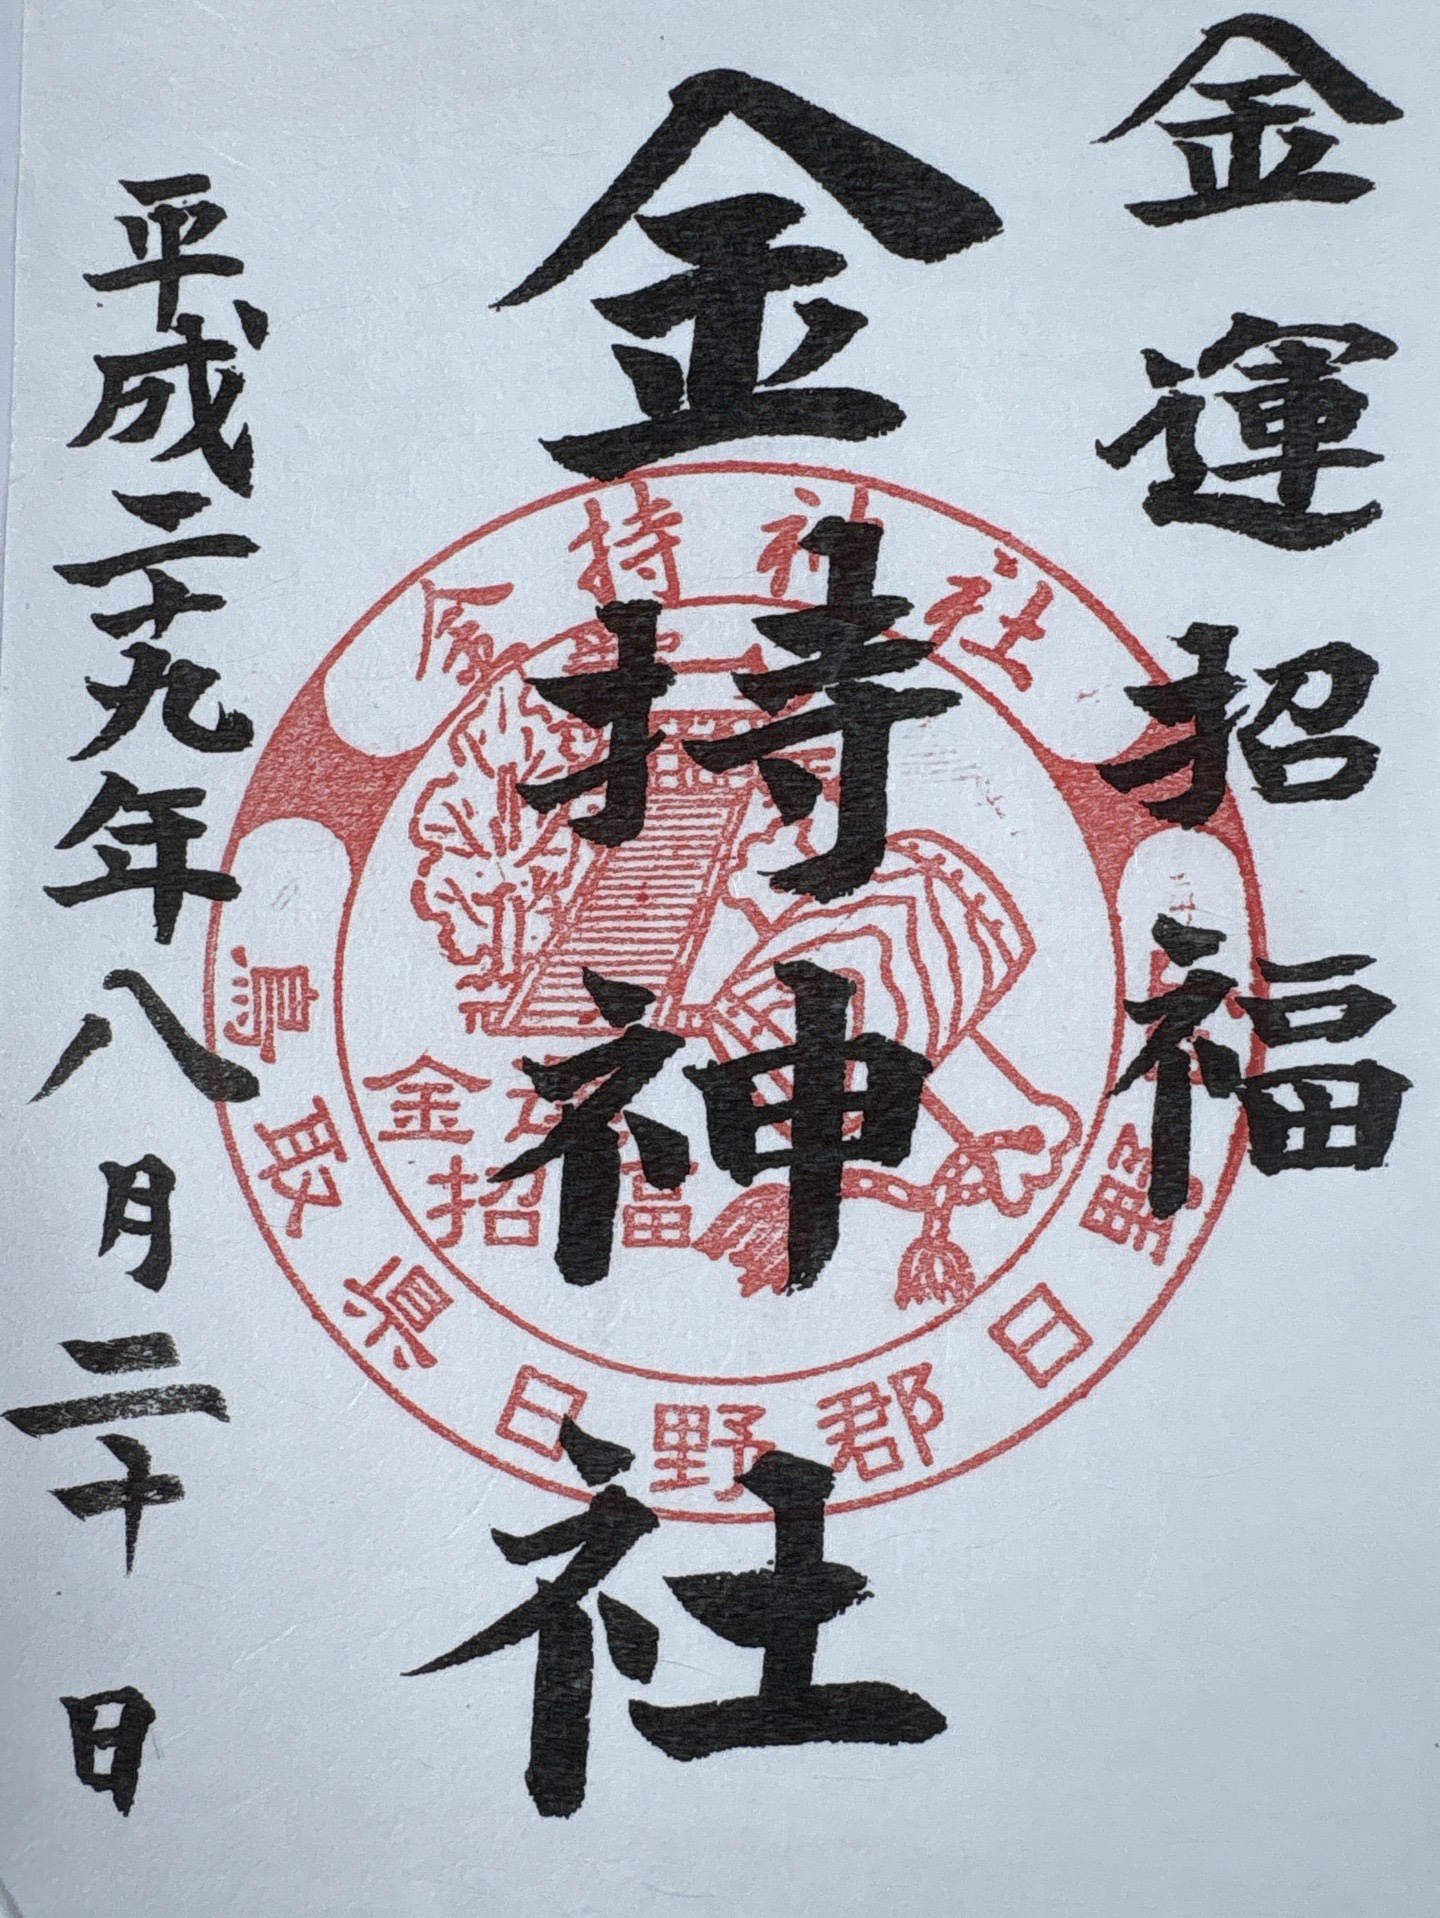 金運招福
金持神社
平成二十九年八月二十日
金持神社
鳥取県日野郡日野町
金運
招福